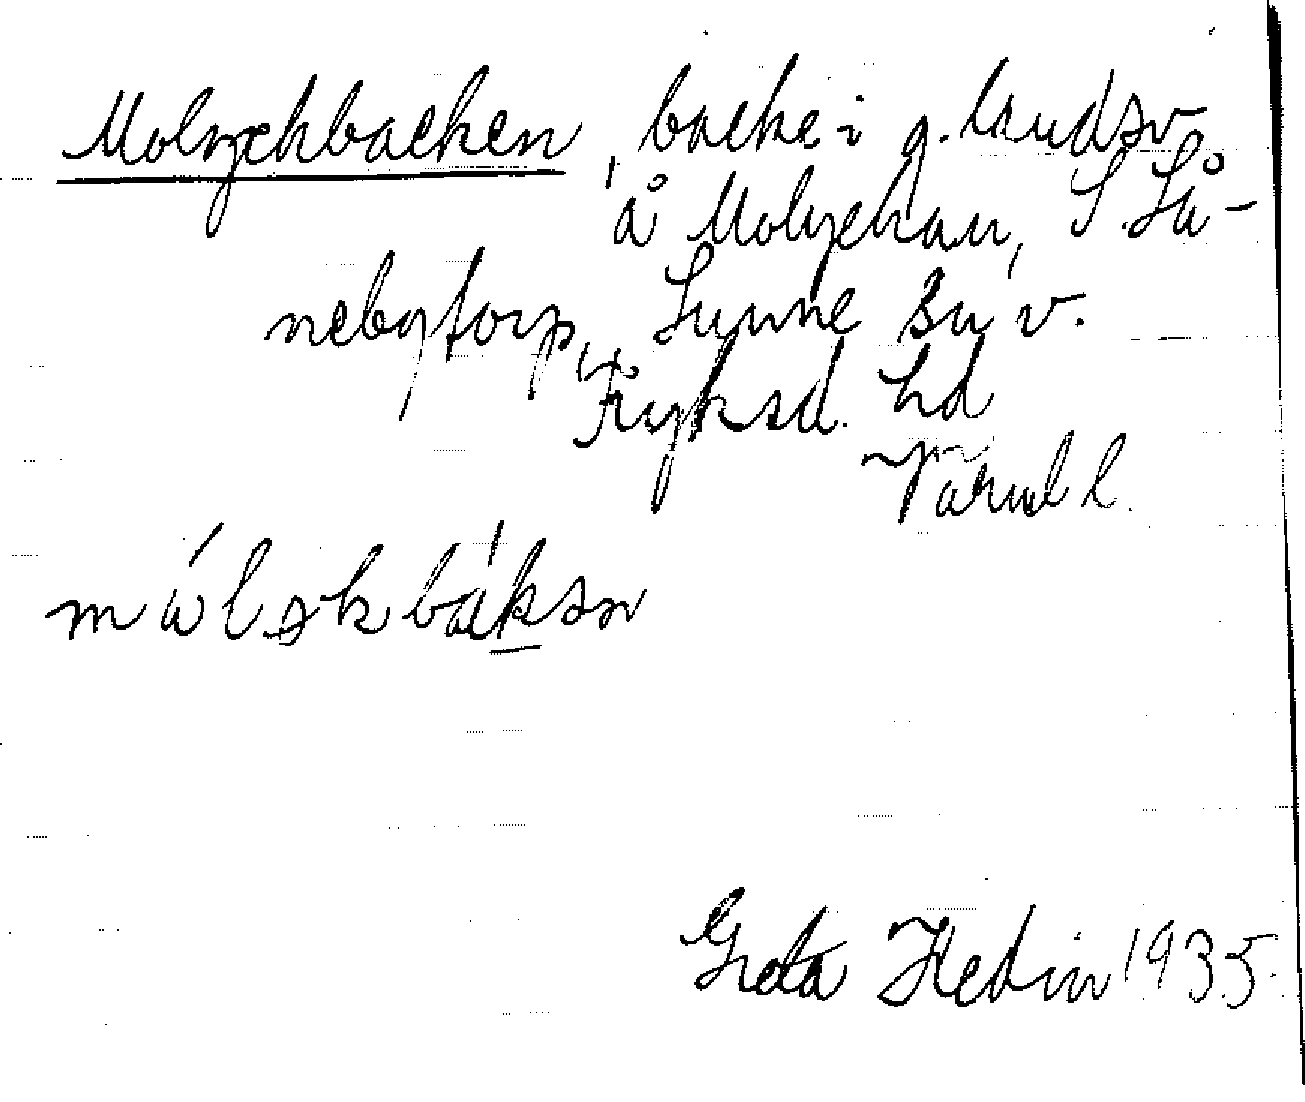 Molyckbacken, backe i g. landsv.
å Molyckan, S. Lå-
nebytorp, Sunne sn v.
Fryksd. hd
Värml l.
målykbakən
Greta Hedin 1935.